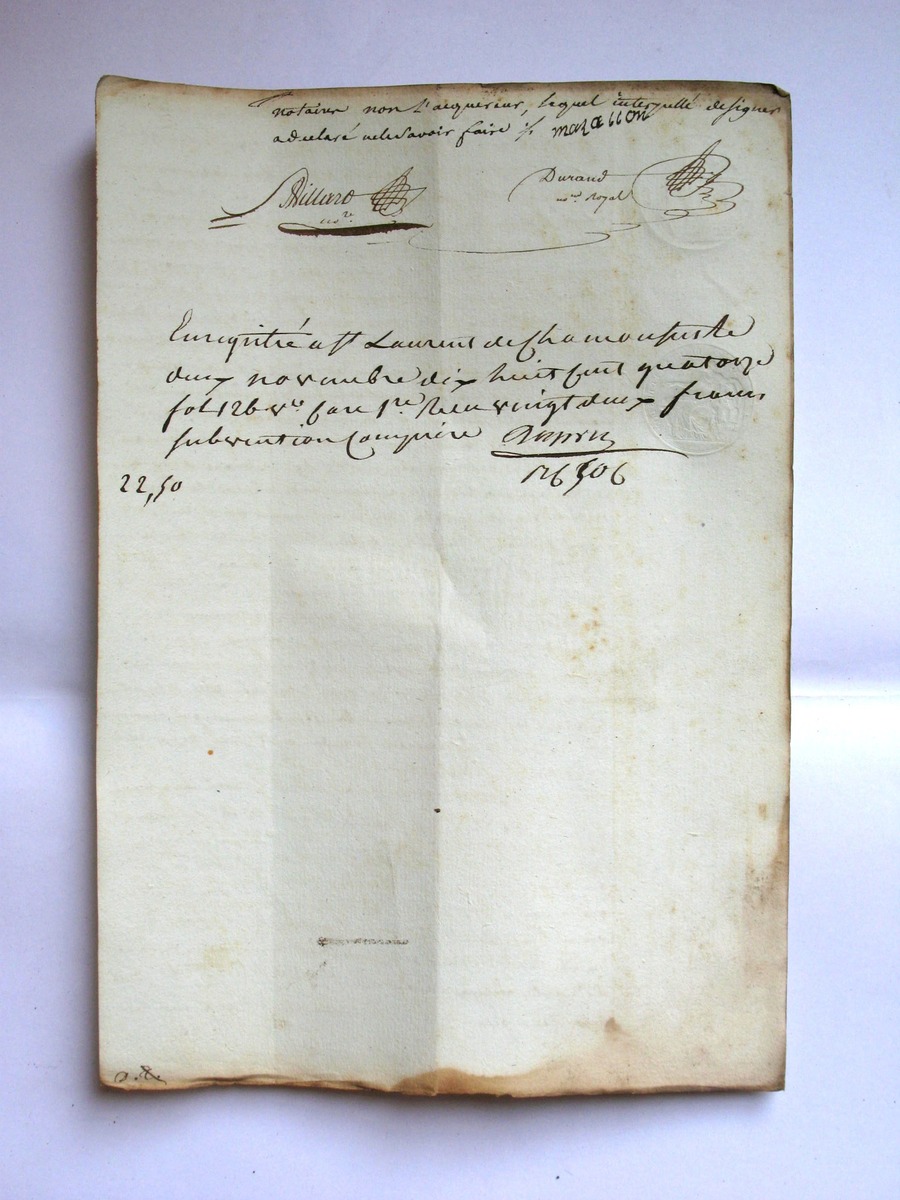 notaire non l'acquereur, lequel interpellé de signer
a declaré ne le savoir faire ./. mazallon
Durand
no.re Royal
no.re
Enregistré a St Laurent de Chamousset le
deux novembre dix huit cent quatorze
fol 126 v.o Case 1.re Reçu vingt deux francs
subvention comprise
126 506
22,50